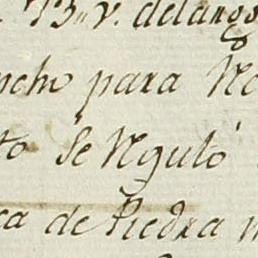 13 v. delargo
ncho para No
to Se Ngulò
ca de Piedra n